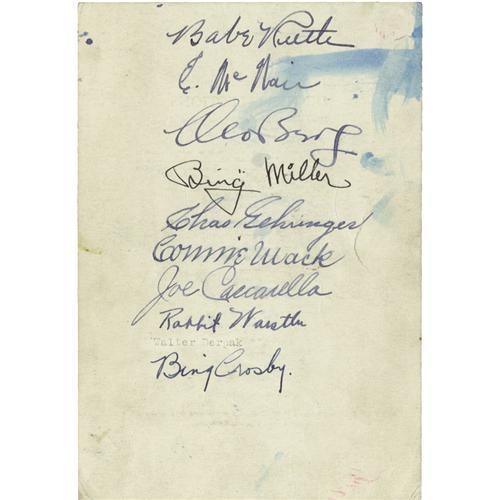 Babe Ruth
E. McNair
Moe Berg
Bing Miller
Chas Gehringer
Connie Mack
Joe Cascarella
Rabbit Warstler
Walter Derpak
Bing Crosby.